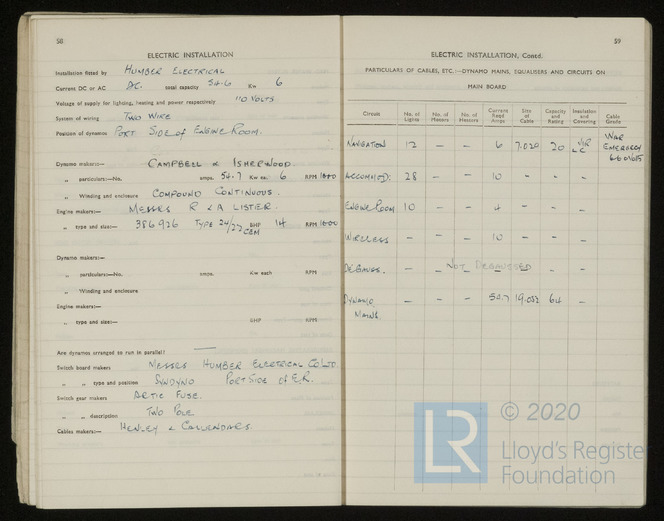 58
ELECTRIC INSTALLATION
Installation fitted by HUMBER ELECTRICAL
Current DC or AC DC. total capacity 54.6 Kw 6
Voltage of supply for lighting, heating and power respectively 110 VOLTS
System of wiring TWO WIRE
Position of dynamos PORT SIDE of ENGINE ROOM.
Dynamo makers:— CAMPBELL & ISHERWOOD
„ particulars:—No. amps. 54.7 Kw ea. 6 RPM 1000
„ Winding and enclosure COMPOUND CONTINUOUS.
Engine makers:— MESSRS R & A LISTER.
„ type and size:— 386926 TYPE 24/22 BHP 14 RPM 1000
Dynamo makers:—
„ particulars:—No. amps. Kw each RPM
„ Winding and enclosure
Engine makers:—
„ type and size:— BHP RPM
Are dynamos arranged to run in parallel? —
Switch board makers MESSRS HUMBER ELECTRICAL CO LTD
„ „ type and position SYNDYNO PORT SIDE of E.R.
Switch gear makers ARTIC FUSE.
„ „ description TWO POLE
Cables makers:— HENLEY & CALLENDARS.
59
ELECTRIC INSTALLATION, Contd.
PARTICULARS OF CABLES, ETC.:—DYNAMO MAINS, EQUALISERS AND CIRCUITS ON
MAIN BOARD
Circuit No. of Lights No. of Motors No. of Heaters Current Reqd Amps Size of Cable Capacity and Rating Insulation and Covering Cable Grade
NAVIGATION 12 — — 6 7.029 20 VIR LC WAR EMERGENCY 660 VOLTS
ACCOMMOD: 28 — — 10 — — —
ENGINE ROOM 10 — — 4 — — —
WIRELESS — — — 10 — — —
DEGAUSS. — — NOT DEGAUSSED — — —
DYNAMO MAINS. — — — 54.7 19.052 64 —
LR
© 2020
Lloyd's Register
Foundation